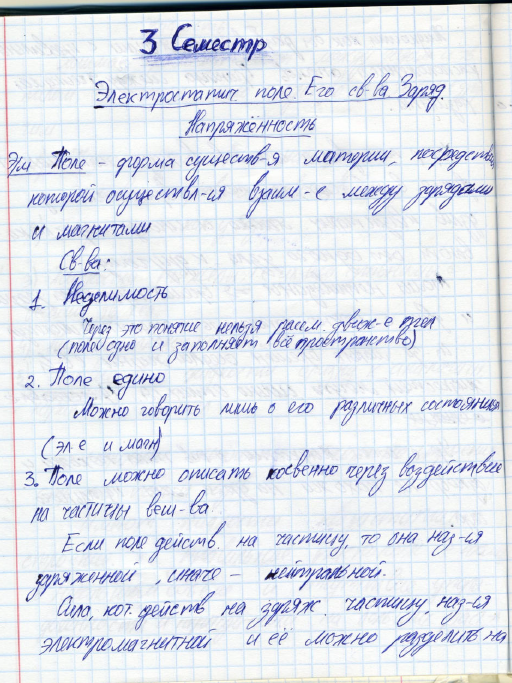 3 Семестр
Электростатич. поле. Его св-ва Заряд.
Напряжённость
Э/м Поле - форма существ-я материи, посредством
которой осуществл-ся взаим-е между зарядами
и магнитами
Св-ва:
1. Неделимость
Через это понятие нельзя рассм. движ-е
(поле одно и заполняет всё пространство)
2. Поле едино
Можно говорить лишь о его различных состояниях
(эл-е и магн)
3. Поле можно описать косвенно через воздействие
на частицы вещ-ва.
Если поле действ. на частицу, то она наз-ся
заряженной, иначе - нейтральной.
Сила, кот. действ на заряж. частицу, наз-ся
электромагнитной и её можно разделить на